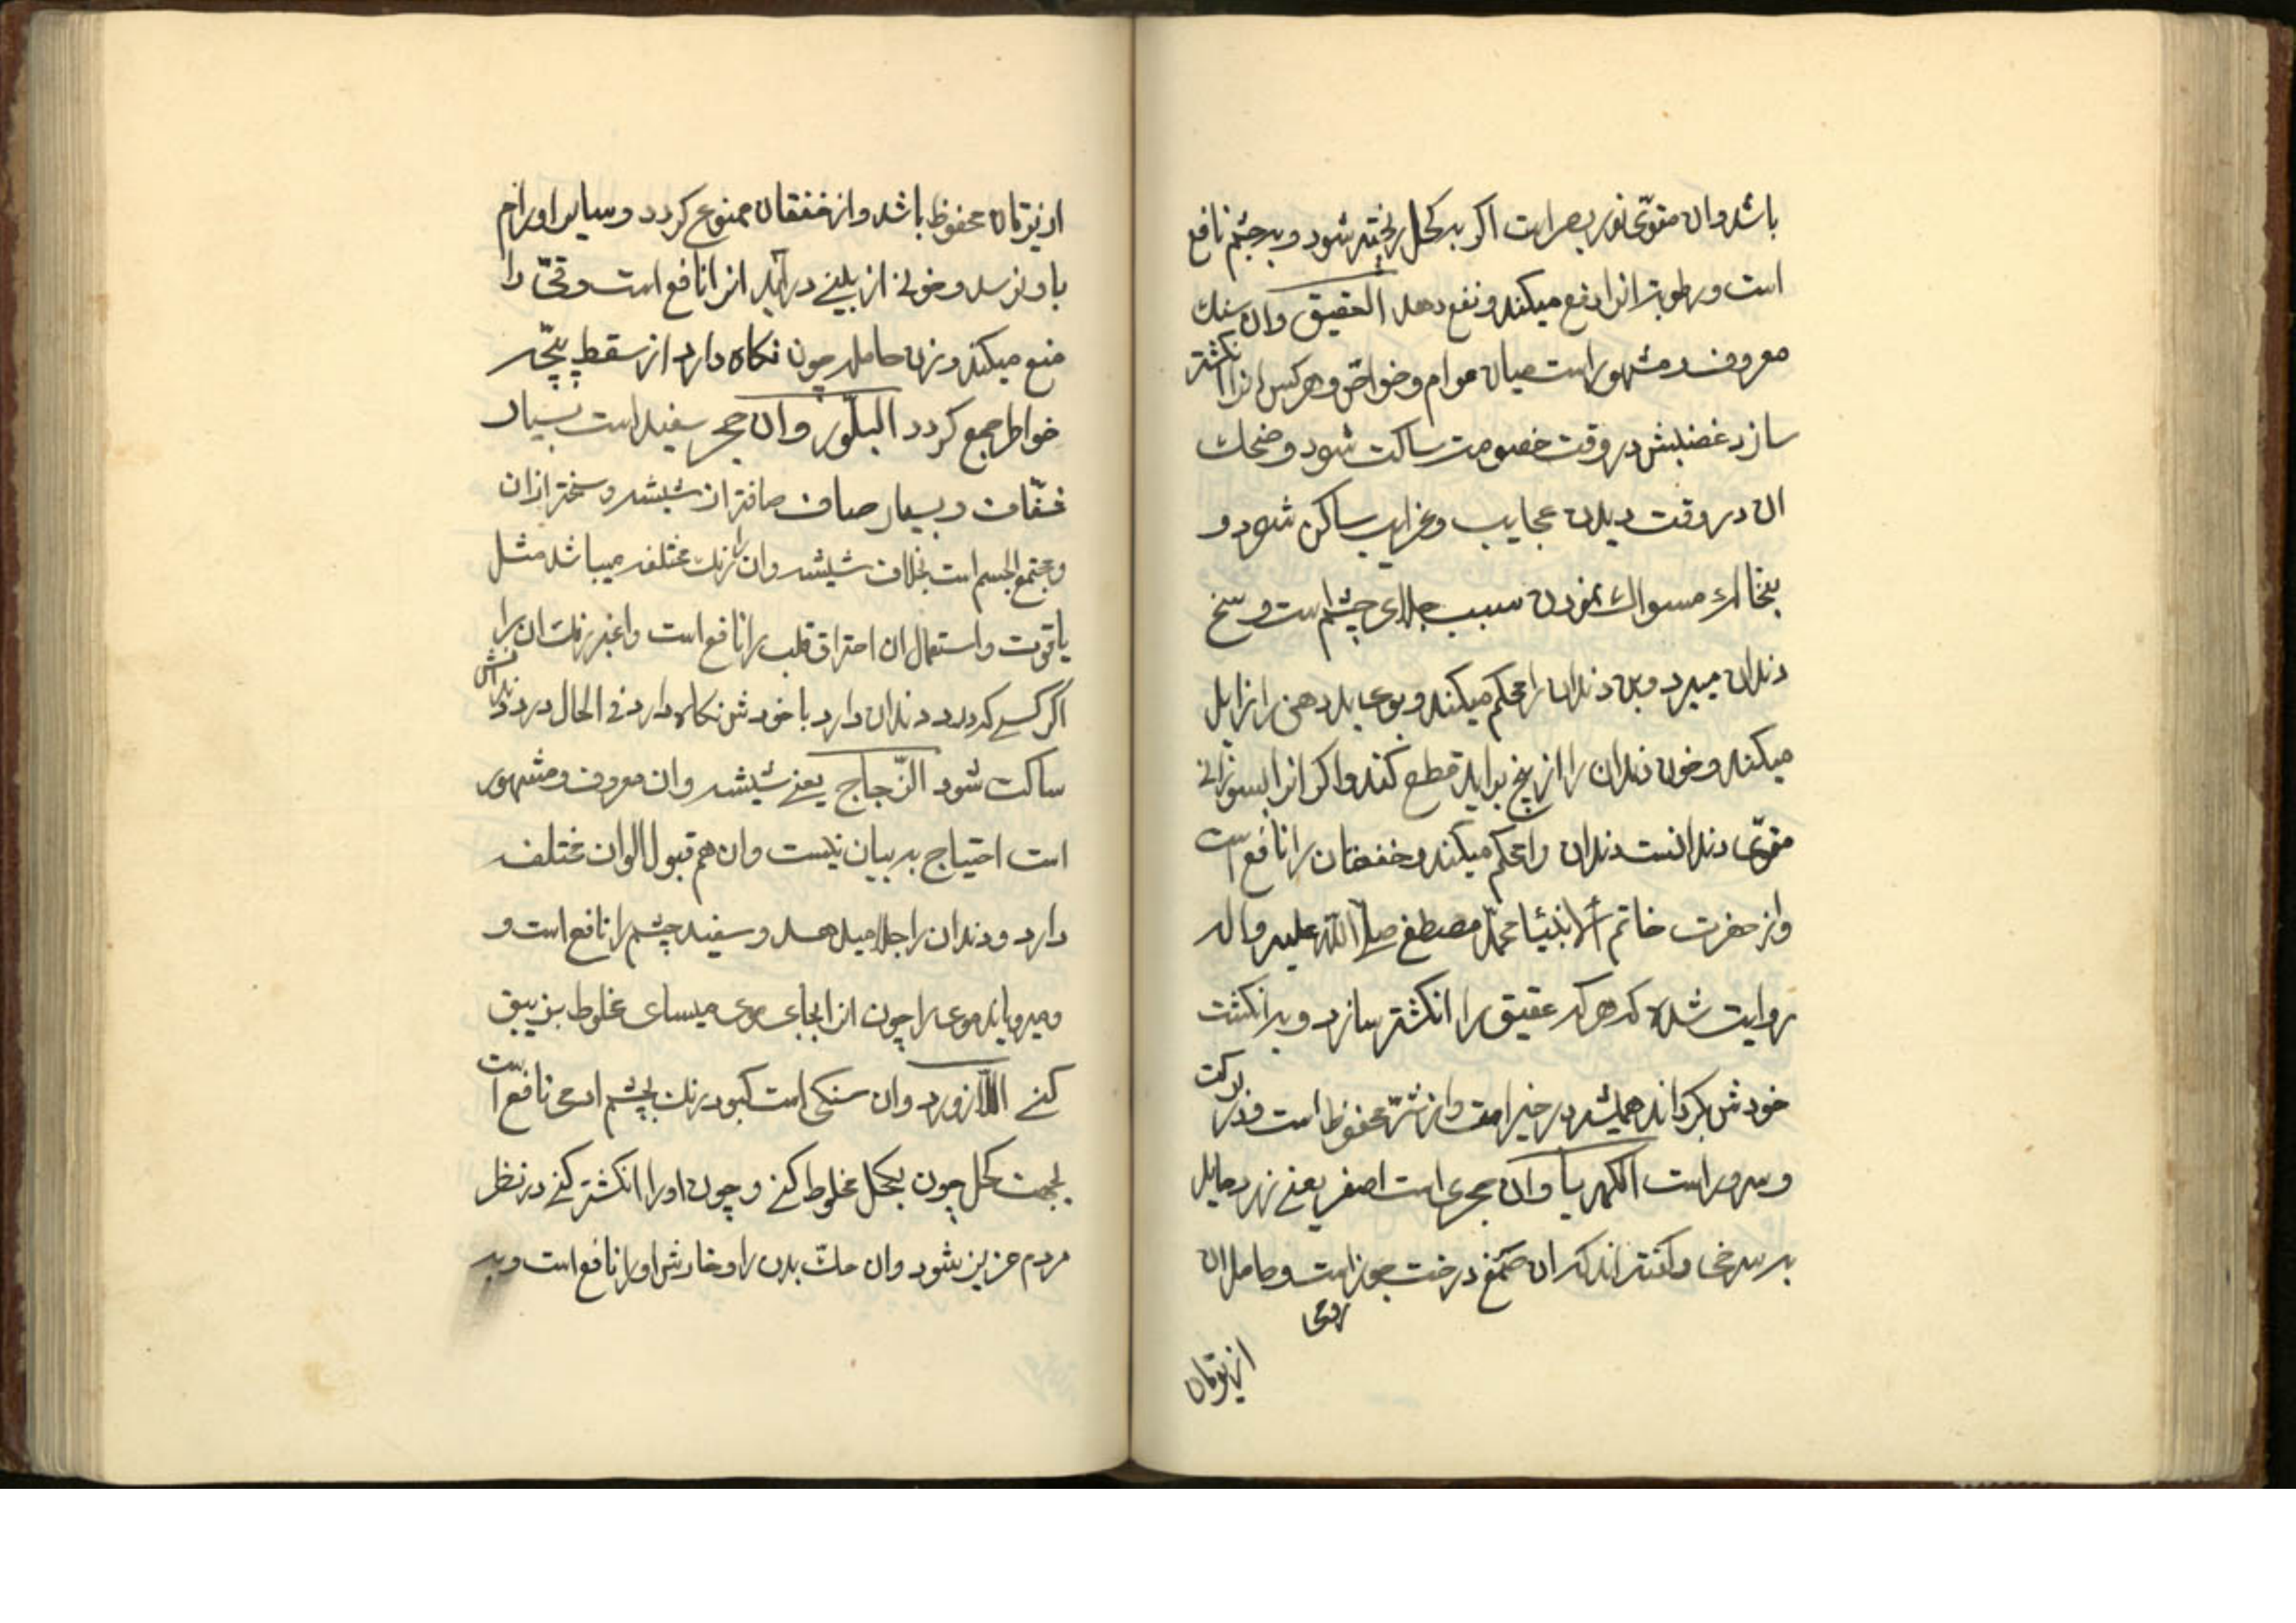 باشد وان مقوّی نور بصر است اکر به کحل ریخته شود و بر چشم نافع
است و رطوبة انرا دفع میکند و نفع دهد العقیق وان سنك
معروف و مشهور است میان عوام و خواصّ و هر کس انرا انکشتر
سازد غضبش در وقت خصومت ساکت شود و ضحك
ان در وقت دیدن عجایب و غرایب ساکن شود و
بنخاله مسواك نمودن سبب جلای چشم است و سخ
دندان میبرد و بن دندان را محکم میکند و بوی بد دهن را زایل
میکند و خون دندان را از بیخ براید قطع کند و اکر انرا بسوزانے
مقوّی دندانست دندان را محکم میکند و خفقان را نافع است
و از حضرت خاتم الانبیا محمّد مصطفی صلی الله علیه و اله
روایت شده که هر که عقیق را انکشتر سازد و بر انکشت
خودش بکرداند همیشه در خیر است و از شرّ محفوظ است و در برکت
و سرور است الکهربا وان حجری است اصفر یعنے زرد مایل
به سرخی و کفته اند که ان صمغ درخت جوز است و حامل ان
رومی
از یرقان
از یرقان محفوظ باشد و از خفقان ممنوع کردد و سایر اورام
باو نرسد و خونے از بینے در آید انرا نافع است و قیّ را
منع میکند و زن حامله چون نکاه دارد از سقط بچّه
خواطر جمع کردد البلّور وان حجر سفید است بسیار
شفّاف و بسیار صاف صافتر از شیشه و سختر ازان
و مجتمع الجسم است بخلاف شیشه وان برنك مختلف میباشد مثل
یاقوت و استعمال ان احتراق قلب را نافع است و اغبر رنك ان را
اکر کسے که درد دندان دارد با خودش نکاه دارد فی الحال درد دندانش
ساکت شود الزّجاج یعنے شیشه وان معروف و مشهور
است احتیاج به بیان نیست وان هم قبول الوان مختلف
دارد و دندان را جلا میدهد و سفید چشم را نافع است و
و میرویاند موی را چون انرا بجای موی میسای مخلوط بزیبق
کنے اللازورد وان سنکی است کبود رنك بچشم ادمی نافع است
بجهت کحل چون بکحل مخلوط کنے و چون او را انکشتر کنے در نظر
مردم عزیز شود وان حكّ بدن را و خارش او را نافع است و بر